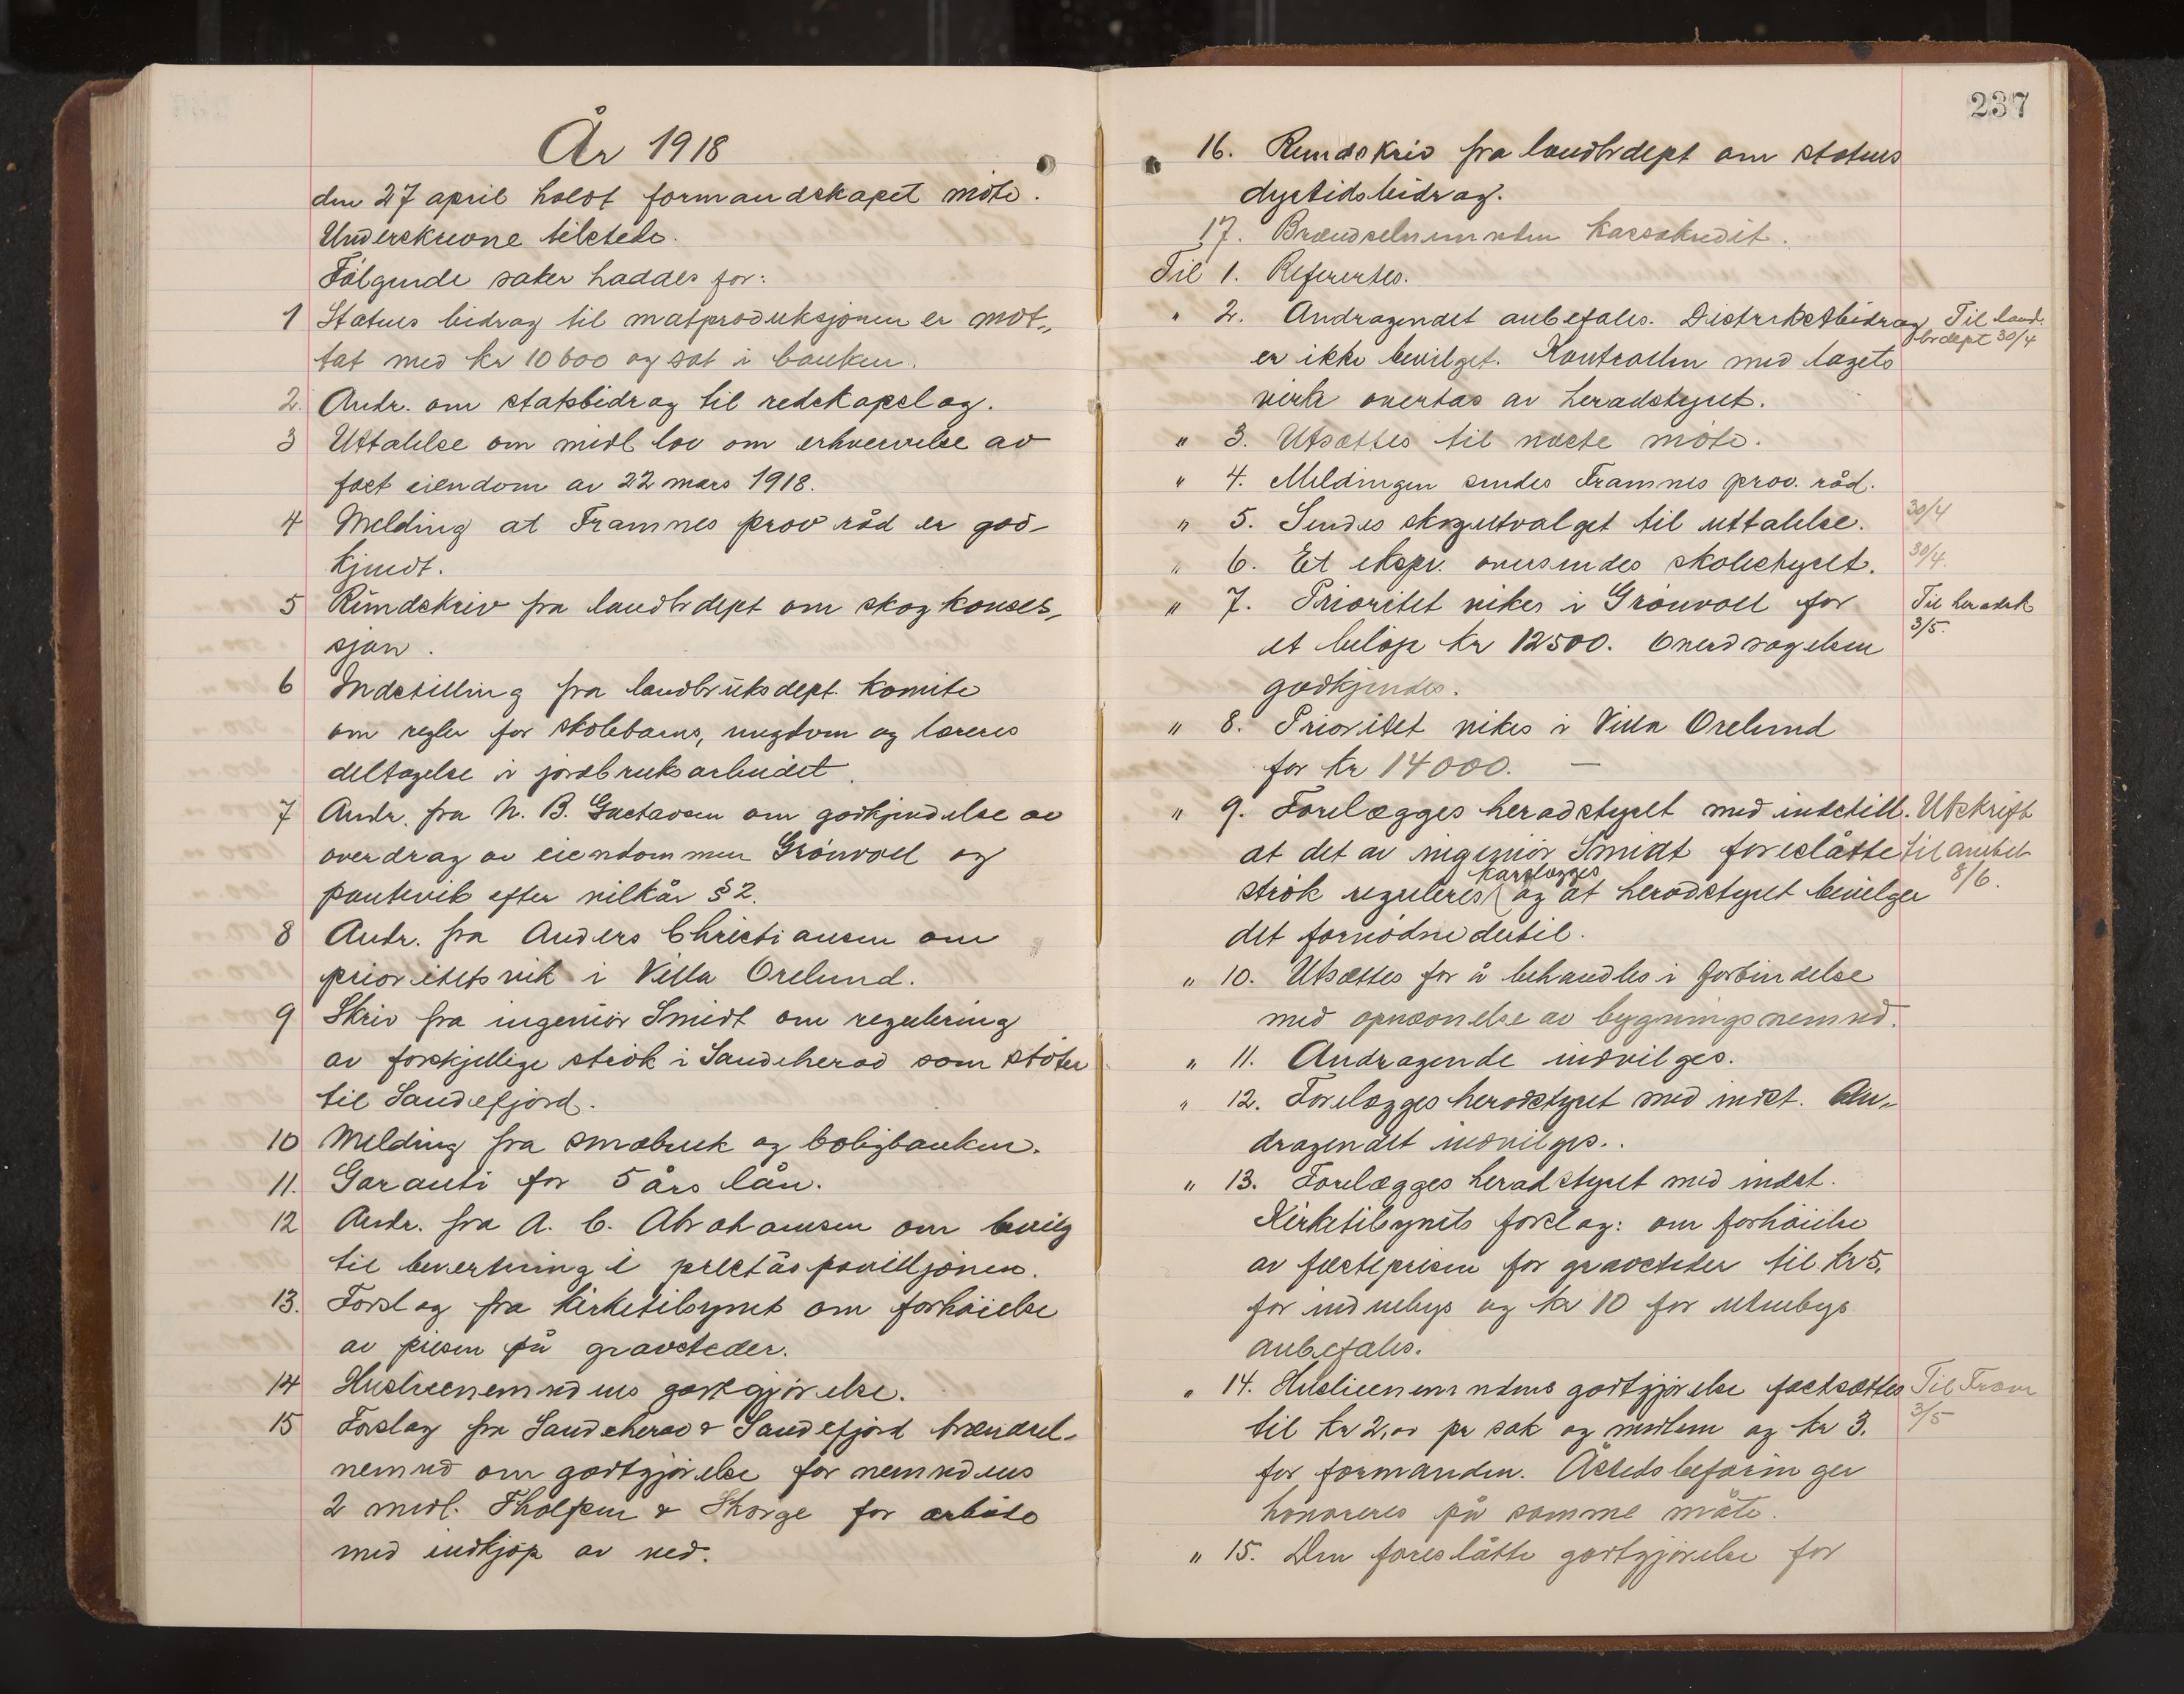 År 1918
den 27 april holdt formandskapet möte.
Underskrevne tilstede.
Følgende saker haddes for:
1 Statens bidrag til matproduksjonen er mot„
tat med kr 10600 og sat i banken.
2. Andr. om statsbidrag til redskapslag.
3 Uttalelse om midl lov om erhvervelse av
fast eiendom av 22 mars 1918.
4 Melding at Framnes prov råd er god-
kjendt.
5 Rundskriv fra landbrdept om skogkonses„
sjon.
6 Indstilling fra landbruksdept. komite
om regler for skolebarns, ungdom og læreres
deltagelse i jordbruksarbeidet.
7 Andr. fra N. B. Gustavsen om godkjendelse av
overdrag av eiendommen Grönvoll og
pantevik efter vilkår §2.
8 Andr. fra Anders Christiansen om
prioritetsvik i Villa Orelund.
9 Skriv fra ingeniör Smidt om regulering
av forskjellige strök i Sandeherad som stöter
til Sandefjord.
10 Melding fra småbruk og boligbanken.
11. Garanti for 5 års lån.
12 Andr. fra A. C. Abrahamsen om bevilg
til bevertning i preståspavilljonen.
13. Forslag fra kirketilsynet om forhöielse
av prisen på gravsteder.
14 Husleienemndens godtgjörelse.
15 Forslag fra Sandeherad & Sandefjord brændsel-
nemnd om godtgjörelse for nemndens
2 medl. Tholfsen & Skorge for arbeide
med indkjöp av ved.
237
16. Rundskriv fra landbrdept om statens
dyrtidsbidrag.
17. Brændselnemnden kassakredit.
Til 1. Refirertes.
" 2. Andragendet anbefales. Distriktsbidrag Til land.
er ikke bevilget. Kontrollen med lagets brdept 30/4
virke overtas av heradstyret.
" 3. Utsættes til næste möte.
" 4. Meldingen sendes Framnes prov. råd.
" 5. Sendes skogutvalget til uttalelse. 30/4
" 6. Et ekspr. oversendes skolestyret. 30/4.
" 7. Prioritet vikes i Grönvoll for Til heradsk
et belöp kr 12500. Overdragelsen 3/5.
godkjendes.
" 8. Prioritet vikes i Villa Orelund
for kr 14000. —
" 9. Forelægges heradstyret med indstill. Utskrift
at det av ingeniör Smidt foreslåtte til anbef.
kartlægges
strök reguleres og at heradstyret bevilger 8/6.
det fornödne dertil.
" 10. Utsættes for å behandles i forbindelse
med opnævnelse av bygningsnemnd.
" 11. Andragende indvilges.
" 12. Forelægges heradstyret med indst. An„
dragendet indvilges.
" 13. Forelægges heradstyret med indst.
Kirketilsynets forslag: om forhöielse
av festeprisen for gravsteder til kr 5.
for indnebys og kr 10 for utnebys
anbefales.
" 14. Husleienemndens godtgjörelse fastsættes Til Fram
til kr 2,00 pr sak og medlem og kr 3. 3/5
for formanden. Åstedsbefaringer
honoreres på samme måte.
" 15. Den foreslåtte godtgjörelse for